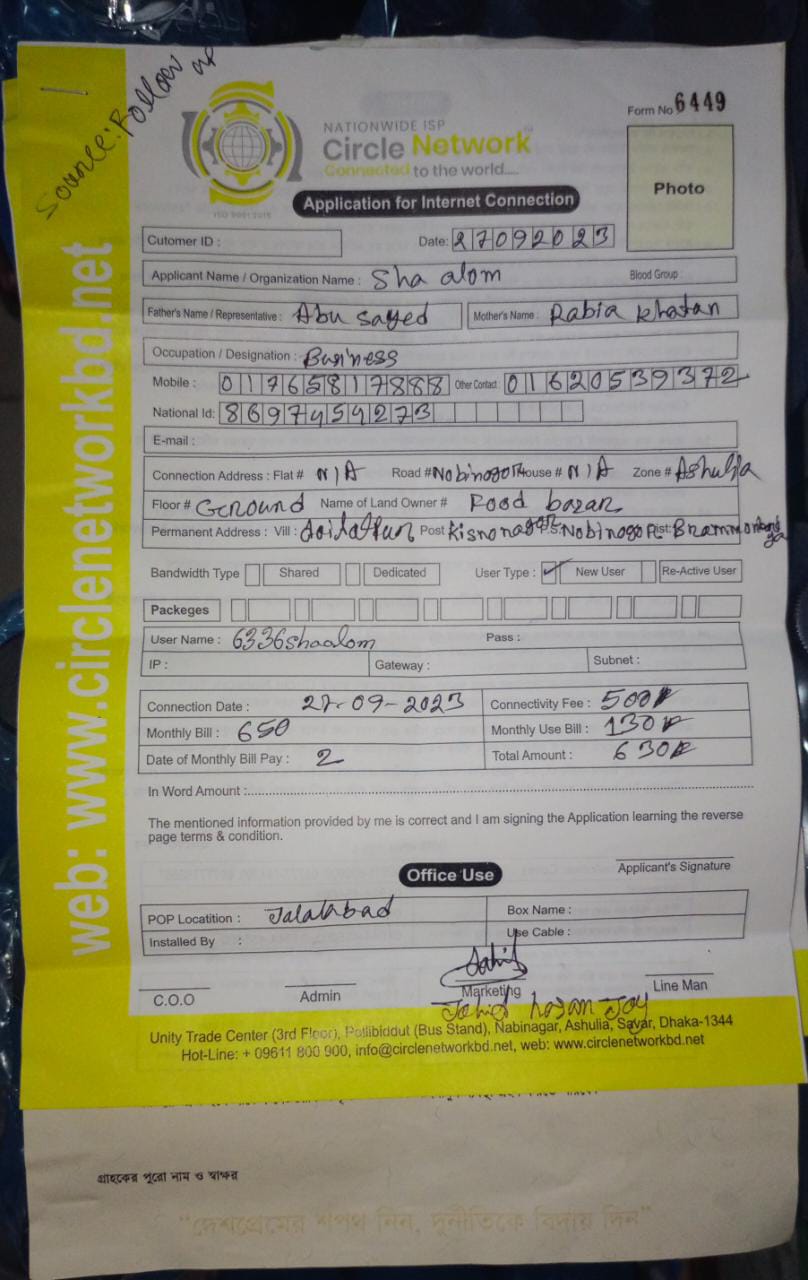 Source: Follow up
Form No 6449
NATIONWIDE ISP
Circle Network
Connected to the world.....
ISO 9001:2015
Photo
Application for Internet Connection
Cutomer ID : Date: 27092023
Applicant Name / Organization Name : Sha alom Blood Group :
Father's Name / Representative : Abu sayed Mother's Name : Rabia Khatan
Occupation / Designation : Business
Mobile : 01765817888 Other Contact : 01620539372
National Id: 8697454273
E-mail :
Connection Address : Flat # N/A Road # Nobinogor House # N/A Zone # Ashulia
Floor # Ground Name of Land Owner # Food bazar
Permanent Address : Vill : Post Kisnonagor P.S: Nobinogor Dist:
Bandwidth Type Shared Dedicated User Type : New User Re-Active User
Packeges
User Name : 6336shaalom Pass :
IP : Gateway : Subnet :
Connection Date : 27-09-2023 Connectivity Fee : 500৳
Monthly Bill : 650 Monthly Use Bill : 130৳
Date of Monthly Bill Pay : 2 Total Amount : 630৳
In Word Amount :
The mentioned information provided by me is correct and I am signing the Application learning the reverse
page terms & condition.
Applicant's Signature
Office Use
POP Locatition : Jalalabad Box Name :
Installed By : Use Cable :
C.O.O Admin Marketing Line Man
Jahid hasan Joy
Unity Trade Center (3rd Floor), Pollibiddut (Bus Stand), Nabinagar, Ashulia, Savar, Dhaka-1344
Hot-Line: + 09611 800 900, info@circlenetworkbd.net, web: www.circlenetworkbd.net
web: www.circlenetworkbd.net
গ্রাহকের পুরো নাম ও স্বাক্ষর
“দেশপ্রেমের শপথ নিন, দুর্নীতিকে বিদায় দিন”